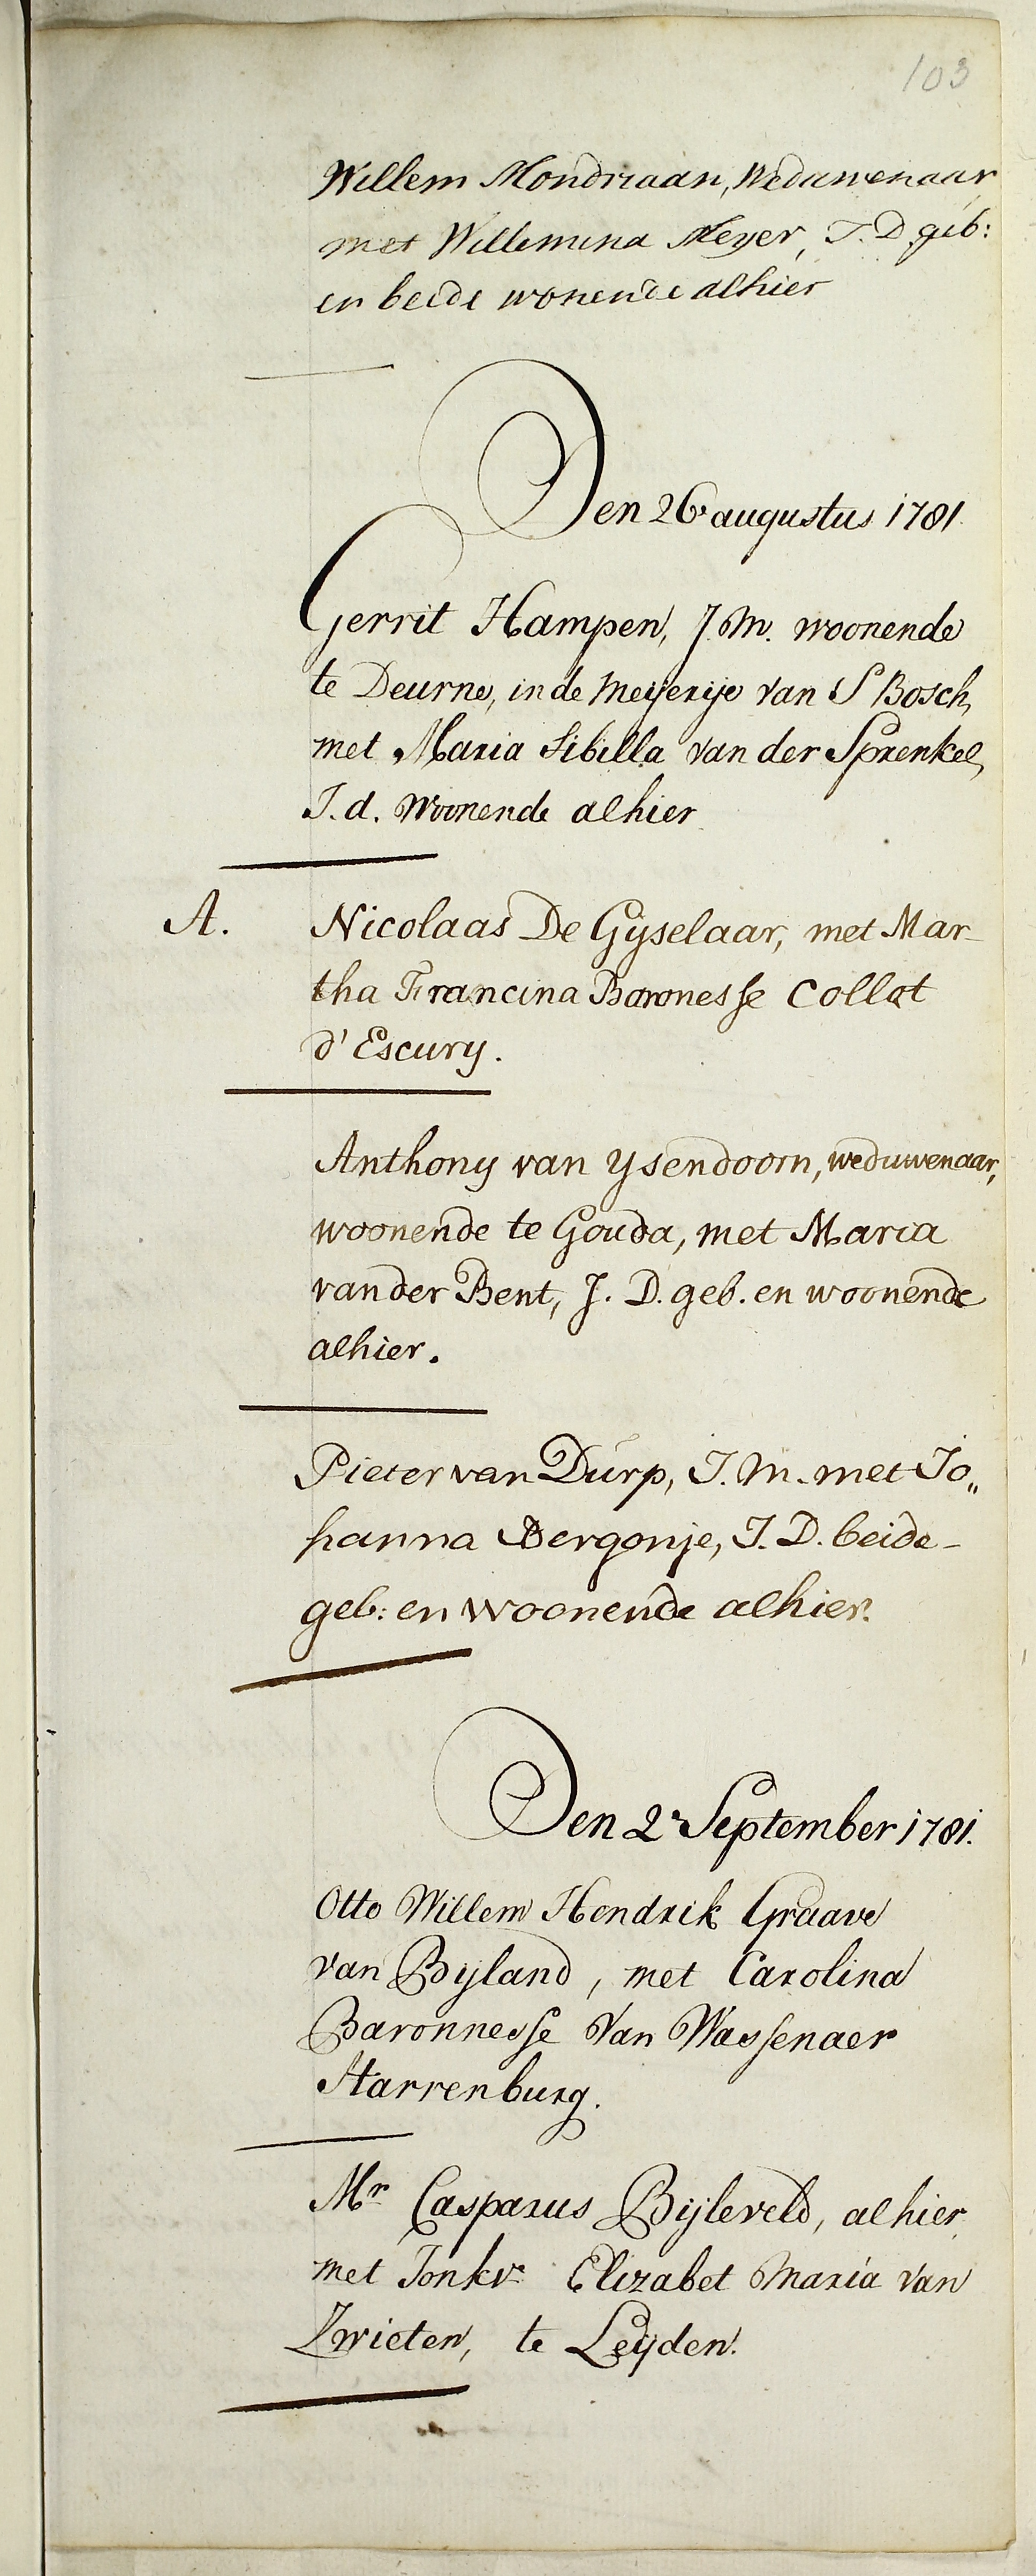 103
Willem Mondriaan, Weduwenaar
met Willemina Meyer, J. D geb:
en beide wonende alhier
Den 26 augustus 1781.
Gerrit Hampen, J. M. woonende
te Deurne, in de Meijerije van S Bosch,
met Maria Sibilla van der Sprenkel,
J. d. Woonende alhier
A. Nicolaas De Gijselaar, met Mar-
tha Francina Baronesse Collot
d'Escury.
Anthony van Ysendoorn, weduwenaar,
woonende te Gouda, met Maria
van der Bent, J. D. geb. en woonende
alhier.
Pieter van Durp, J. M. met Jo„
hanna Bergonje, J. D. beide-
geb: en woonende alhier.
Den 2e September 1781.
Otto Willem Hendrik Graave
van Bijland, met Carolina
Baronnesse Van Wassenaer
Starrenburg.
Mr Casparus Bijleveld, alhier
met Jonkvr Elizabet Maria van
Zwieten, te Leijden.